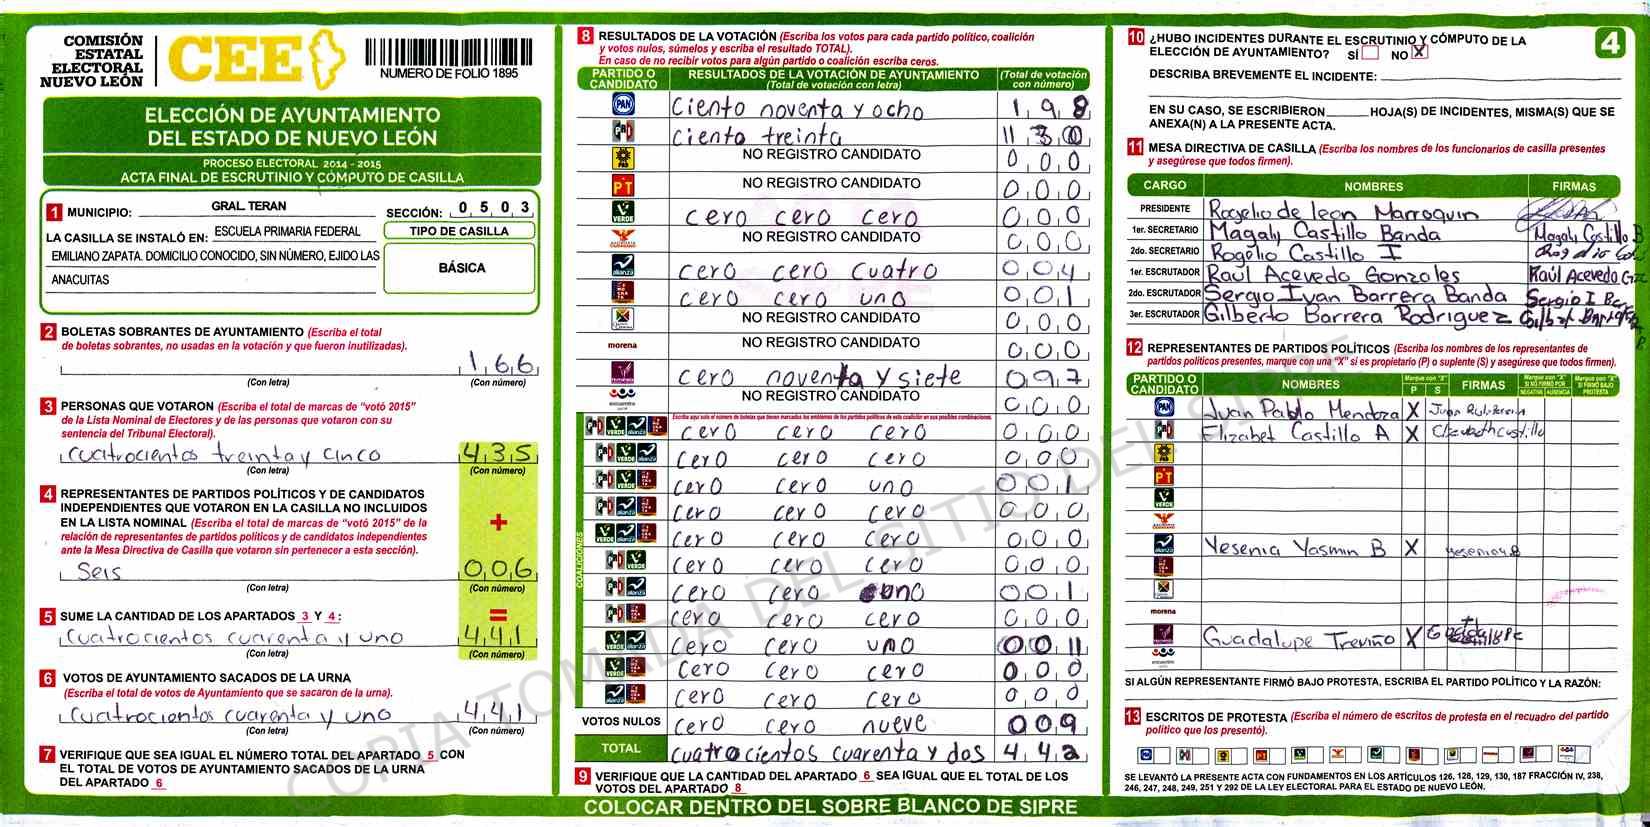 COMISIÓN
ESTATAL
ELECTORAL
NUEVO LEÓN
CEE
NUMERO DE FOLIO 1895
ELECCIÓN DE AYUNTAMIENTO
DEL ESTADO DE NUEVO LEÓN
PROCESO ELECTORAL 2014 - 2015
ACTA FINAL DE ESCRUTINIO Y CÓMPUTO DE CASILLA
1 MUNICIPIO: GRAL. TERAN SECCIÓN: 0 5 0 3
LA CASILLA SE INSTALÓ EN: ESCUELA PRIMARIA FEDERAL
EMILIANO ZAPATA. DOMICILIO CONOCIDO, SIN NÚMERO, EJIDO LAS
ANACUITAS
TIPO DE CASILLA
BÁSICA
2 BOLETAS SOBRANTES DE AYUNTAMIENTO (Escriba el total
de boletas sobrantes, no usadas en la votación y que fueron inutilizadas).
166
(Con letra) (Con número)
3 PERSONAS QUE VOTARON (Escriba el total de marcas de "votó 2015"
de la Lista Nominal de Electores y de las personas que votaron con su
sentencia del Tribunal Electoral).
Cuatrocientos treinta y cinco 435
(Con letra) (Con número)
4 REPRESENTANTES DE PARTIDOS POLÍTICOS Y DE CANDIDATOS
INDEPENDIENTES QUE VOTARON EN LA CASILLA NO INCLUIDOS
EN LA LISTA NOMINAL (Escriba el total de marcas de "votó 2015" de la
relación de representantes de partidos políticos y de candidatos independientes
ante la Mesa Directiva de Casilla que votaron sin pertenecer a esta sección).
+
Seis 006
(Con letra) (Con número)
5 SUME LA CANTIDAD DE LOS APARTADOS 3 Y 4: =
Cuatrocientos cuarenta y uno 441
(Con letra) (Con número)
6 VOTOS DE AYUNTAMIENTO SACADOS DE LA URNA
(Escriba el total de votos de Ayuntamiento que se sacaron de la urna).
Cuatrocientos cuarenta y uno 441
(Con letra) (Con número)
7 VERIFIQUE QUE SEA IGUAL EL NÚMERO TOTAL DEL APARTADO 5 CON
EL TOTAL DE VOTOS DE AYUNTAMIENTO SACADOS DE LA URNA
DEL APARTADO 6
8 RESULTADOS DE LA VOTACIÓN (Escriba los votos para cada partido político, coalición
y votos nulos, súmelos y escriba el resultado TOTAL).
En caso de no recibir votos para algún partido o coalición escriba ceros.
PARTIDO O CANDIDATO RESULTADOS DE LA VOTACIÓN DE AYUNTAMIENTO (Total de votación con letra) (Total de votación con número)
PAN Ciento noventa y ocho 198
PRI Ciento treinta 130
PRD NO REGISTRO CANDIDATO 000
PT NO REGISTRO CANDIDATO 000
VERDE cero cero cero 000
NO REGISTRO CANDIDATO 000
alianza cero cero cuatro 004
cero cero uno 001
NO REGISTRO CANDIDATO 000
morena NO REGISTRO CANDIDATO 000
cero noventa y siete 097
encuentro NO REGISTRO CANDIDATO 000
Escriba aquí solo el número de boletas que tienen marcados los emblemas de los partidos políticos de esta coalición en sus posibles combinaciones.
COALICIONES
cero cero cero 000
cero cero cero 000
cero cero uno 001
cero cero cero 000
cero cero cero 000
cero cero cero 000
cero cero uno 001
cero cero cero 000
cero cero uno 001
cero cero cero 000
cero cero cero 000
VOTOS NULOS cero cero nueve 009
TOTAL cuatrocientos cuarenta y dos 442
9 VERIFIQUE QUE LA CANTIDAD DEL APARTADO 6 SEA IGUAL QUE EL TOTAL DE LOS
VOTOS DEL APARTADO 8
COLOCAR DENTRO DEL SOBRE BLANCO DE SIPRE
COPIA TOMADA DEL SITIO DEL SIPRE
10 ¿HUBO INCIDENTES DURANTE EL ESCRUTINIO Y CÓMPUTO DE LA
ELECCIÓN DE AYUNTAMIENTO? SÍ NO X
4
DESCRIBA BREVEMENTE EL INCIDENTE:
EN SU CASO, SE ESCRIBIERON HOJA(S) DE INCIDENTES, MISMA(S) QUE SE
ANEXA(N) A LA PRESENTE ACTA.
11 MESA DIRECTIVA DE CASILLA (Escriba los nombres de los funcionarios de casilla presentes
y asegúrese que todos firmen).
CARGO NOMBRES FIRMAS
PRESIDENTE Rogelio de leon Marroquin
1er. SECRETARIO Magaly Castillo Banda Magaly Castillo B
2do. SECRETARIO Rogelio Castillo I
1er. ESCRUTADOR Raul Acevedo Gonzoles Raúl Acevedo
2do. ESCRUTADOR Sergio Ivan Barrera Banda Sergio I
3er. ESCRUTADOR Gilberto Barrera Rodriguez
12 REPRESENTANTES DE PARTIDOS POLÍTICOS (Escriba los nombres de los representantes de
partidos políticos presentes, marque con una "X" si es propietario (P) o suplente (S) y asegúrese que todos firmen).
PARTIDO O CANDIDATO NOMBRES Marque con "X" P S FIRMAS Marque con "X" SI NO FIRMÓ POR NEGATIVA AUSENCIA Marque con "X" SI FIRMÓ BAJO PROTESTA
PAN Juan Pablo Mendoza X
PRI Elizabet Castillo A X Elizabeth Castillo
PRD
PT
VERDE
alianza Yesenia Yasmin B X Yesenia B
morena
Guadalupe Treviño X
encuentro
SI ALGÚN REPRESENTANTE FIRMÓ BAJO PROTESTA, ESCRIBA EL PARTIDO POLÍTICO Y LA RAZÓN:
13 ESCRITOS DE PROTESTA (Escriba el número de escritos de protesta en el recuadro del partido
político que los presentó).
SE LEVANTÓ LA PRESENTE ACTA CON FUNDAMENTOS EN LOS ARTÍCULOS 126, 128, 129, 130, 187 FRACCIÓN IV, 238,
246, 247, 248, 249, 251 Y 292 DE LA LEY ELECTORAL PARA EL ESTADO DE NUEVO LEÓN.